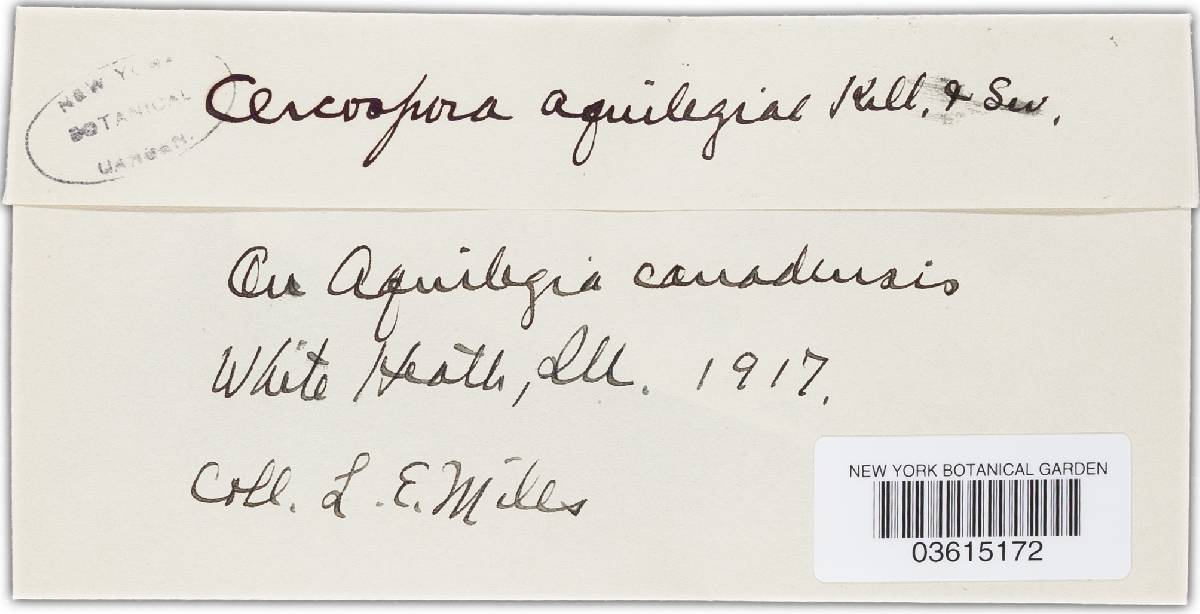 NEW YORK
BOTANICAL
GARDEN.
Cercospora aquilegiae Kell. & Sw.
On Aquilegia canadensis
White Heath, Ill. 1917.
Coll. L. E. Miles
NEW YORK BOTANICAL GARDEN
03615172